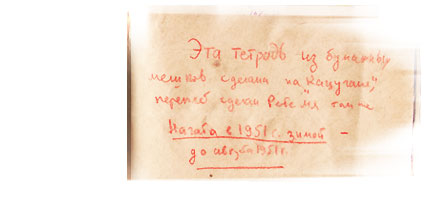 Эта тетрадь из бумажных
мешков сделана на "Кацугане",
переплёт сделан там же
Начата в 1951 г. зимой –
до августа 1951 г.